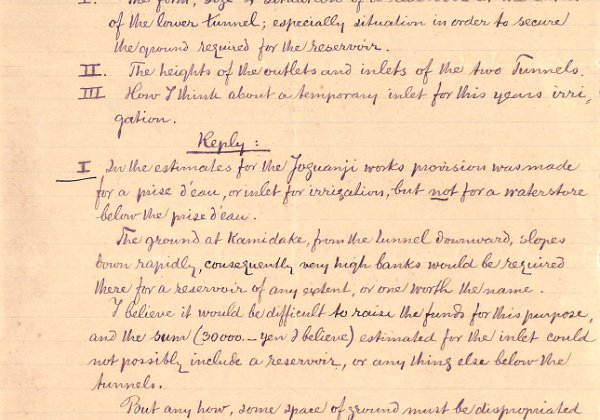 of the lower tunnel; especially situation in order to secure
the ground required for the reservoir.
II. The heights of the outlets and inlets of the two Tunnels.
III How I think about a temporary inlet for this years irri-
gation.
Reply:
I In the estimates for the Joguanji works provision was made
for a prise d'eau, or inlet for irrigation, but not for a waterstore
below the prise d'eau.
The ground at Kamidake, from the tunnel downward, slopes
down rapidly, consequently very high banks would be required
there for a reservoir of any extent, or one worth the name.
I believe it would be difficult to raise the funds for this purpose,
and the sum (30000.- yen I believe) estimated for the inlet could
not possibly include a reservoir, or any thing else below the
tunnels.
But any how, some space of ground must be dispropiated